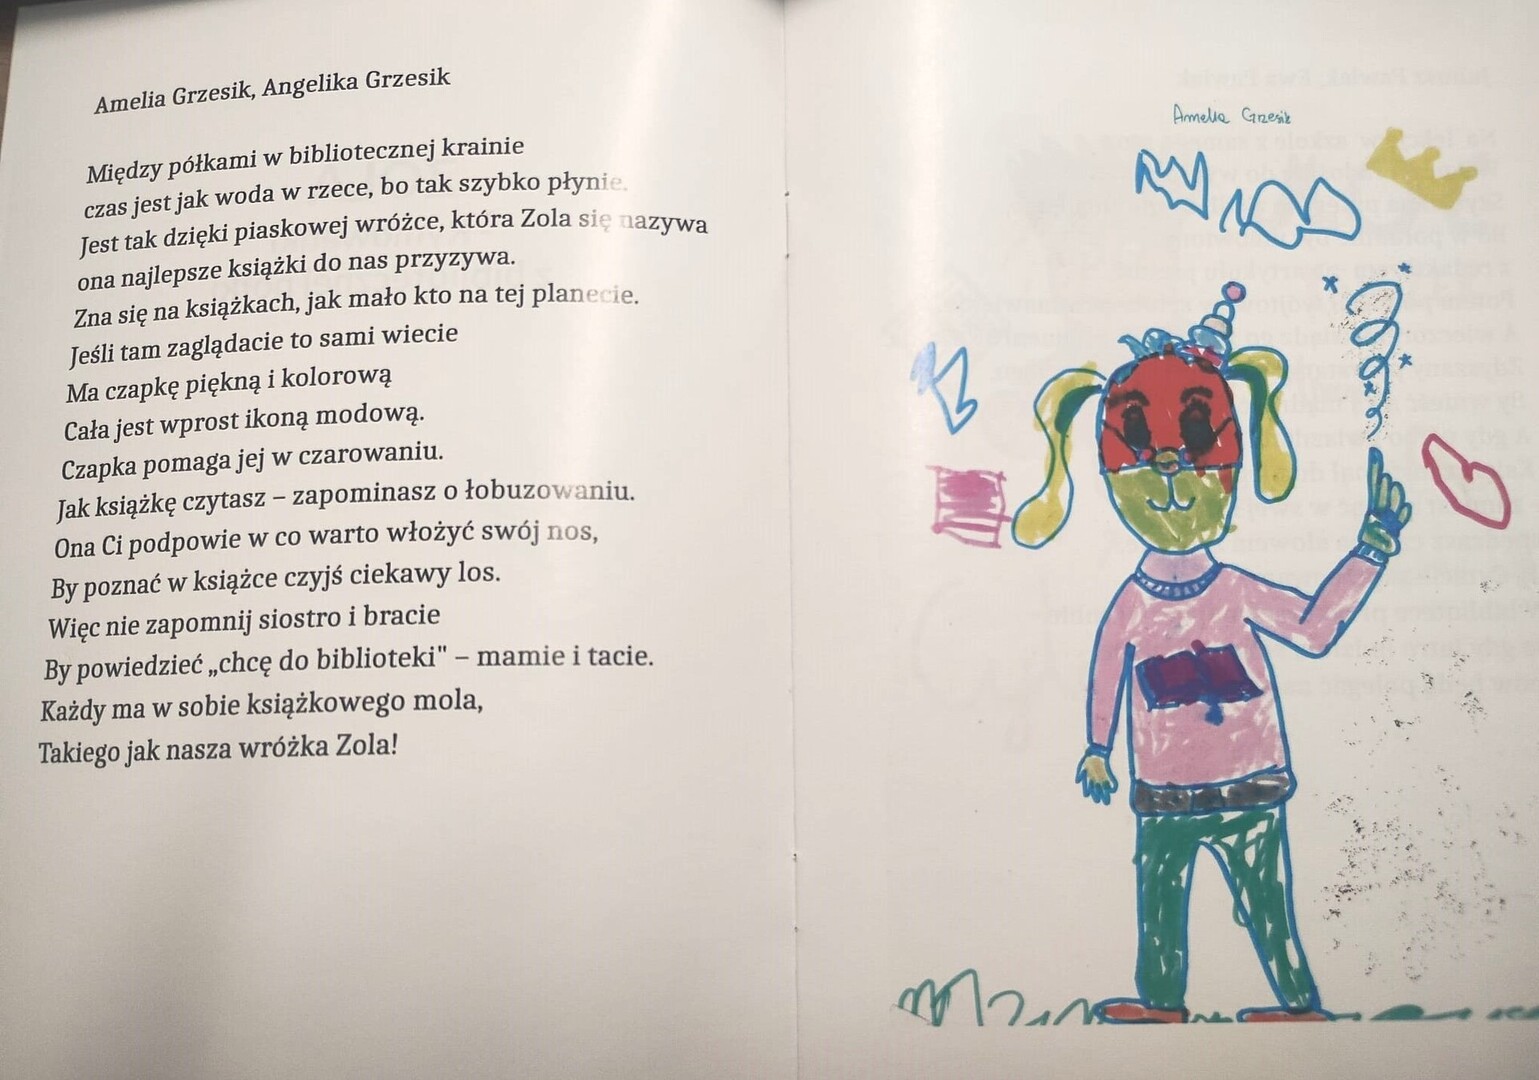 Amelia Grzesik, Angelika Grzesik
Między półkami w bibliotecznej krainie
czas jest jak woda w rzece, bo tak szybko płynie.
Jest tak dzięki piaskowej wróżce, która Zola się nazywa
ona najlepsze książki do nas przyzywa.
Zna się na książkach, jak mało kto na tej planecie.
Jeśli tam zaglądacie to sami wiecie
Ma czapkę piękną i kolorową
Cała jest wprost ikoną modową.
Czapka pomaga jej w czarowaniu.
Jak książkę czytasz – zapominasz o łobuzowaniu.
Ona Ci podpowie w co warto włożyć swój nos,
By poznać w książce czyjś ciekawy los.
Więc nie zapomnij siostro i bracie
By powiedzieć „chcę do biblioteki" – mamie i tacie.
Każdy ma w sobie książkowego mola,
Takiego jak nasza wróżka Zola!
Amelia Grzesik